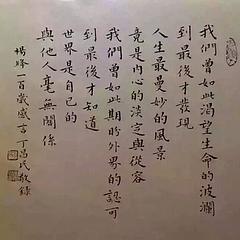 我們曾如此渴望生命的波瀾
到最後才發現
人生最曼妙的風景
竟是内心的淡定與從容
我們曾如此期盼外界的認可
到最後才知道
世界是自己的
與他人毫無關係
楊絳一百歲感言 丁昌氏敬錄